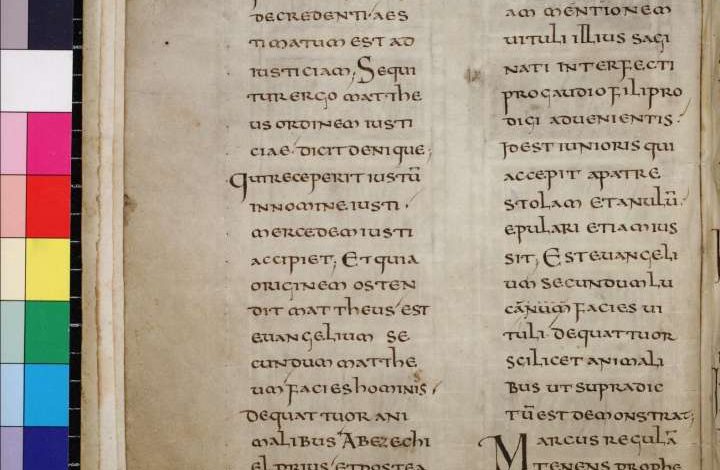 DECREDENTI·AES
TIMATUM EST AD
IUSTICIAM; SEQUI
TUR ERGO MATTHE
US ORDINEM IUSTI
CIAE· DICIT DENIQUE;
QUI RECEPERIT IUSTŪ
IN NOMINE IUSTI·
MERCEDEM IUSTI
ACCIPIET; ET QUIA
ORIGINEM OSTEN
DIT MATTHEUS EST
EUANGELIUM SE
CUNDUM MATTHE
UM FACIES HOMINIS·
DE QUATTUOR ANI
MALIBUS AB EZECHI
EL PRIUS ET POSTEA
AM MENTIONEM
UITULI ILLIUS SAGI
NATI INTERFECTI
PRO GAUDIO FILI PRO
DIGI ADUENIENTIS·
ID EST IUNIORIS QUI
ACCEPIT A PATRE
STOLAM ET ANULŪ·
EPULARI ETIAM IUS
SIT; EST EUANGELI
UM SECUNDUM LU
CĀNŪM FACIES UI
TULI· DE QUATTUOR
SCILICET ANIMALI
BUS UT SUPRADIC
TŪ EST DEMONSTRAT;
MARCUS REGULĀ
TENENS PROPHE